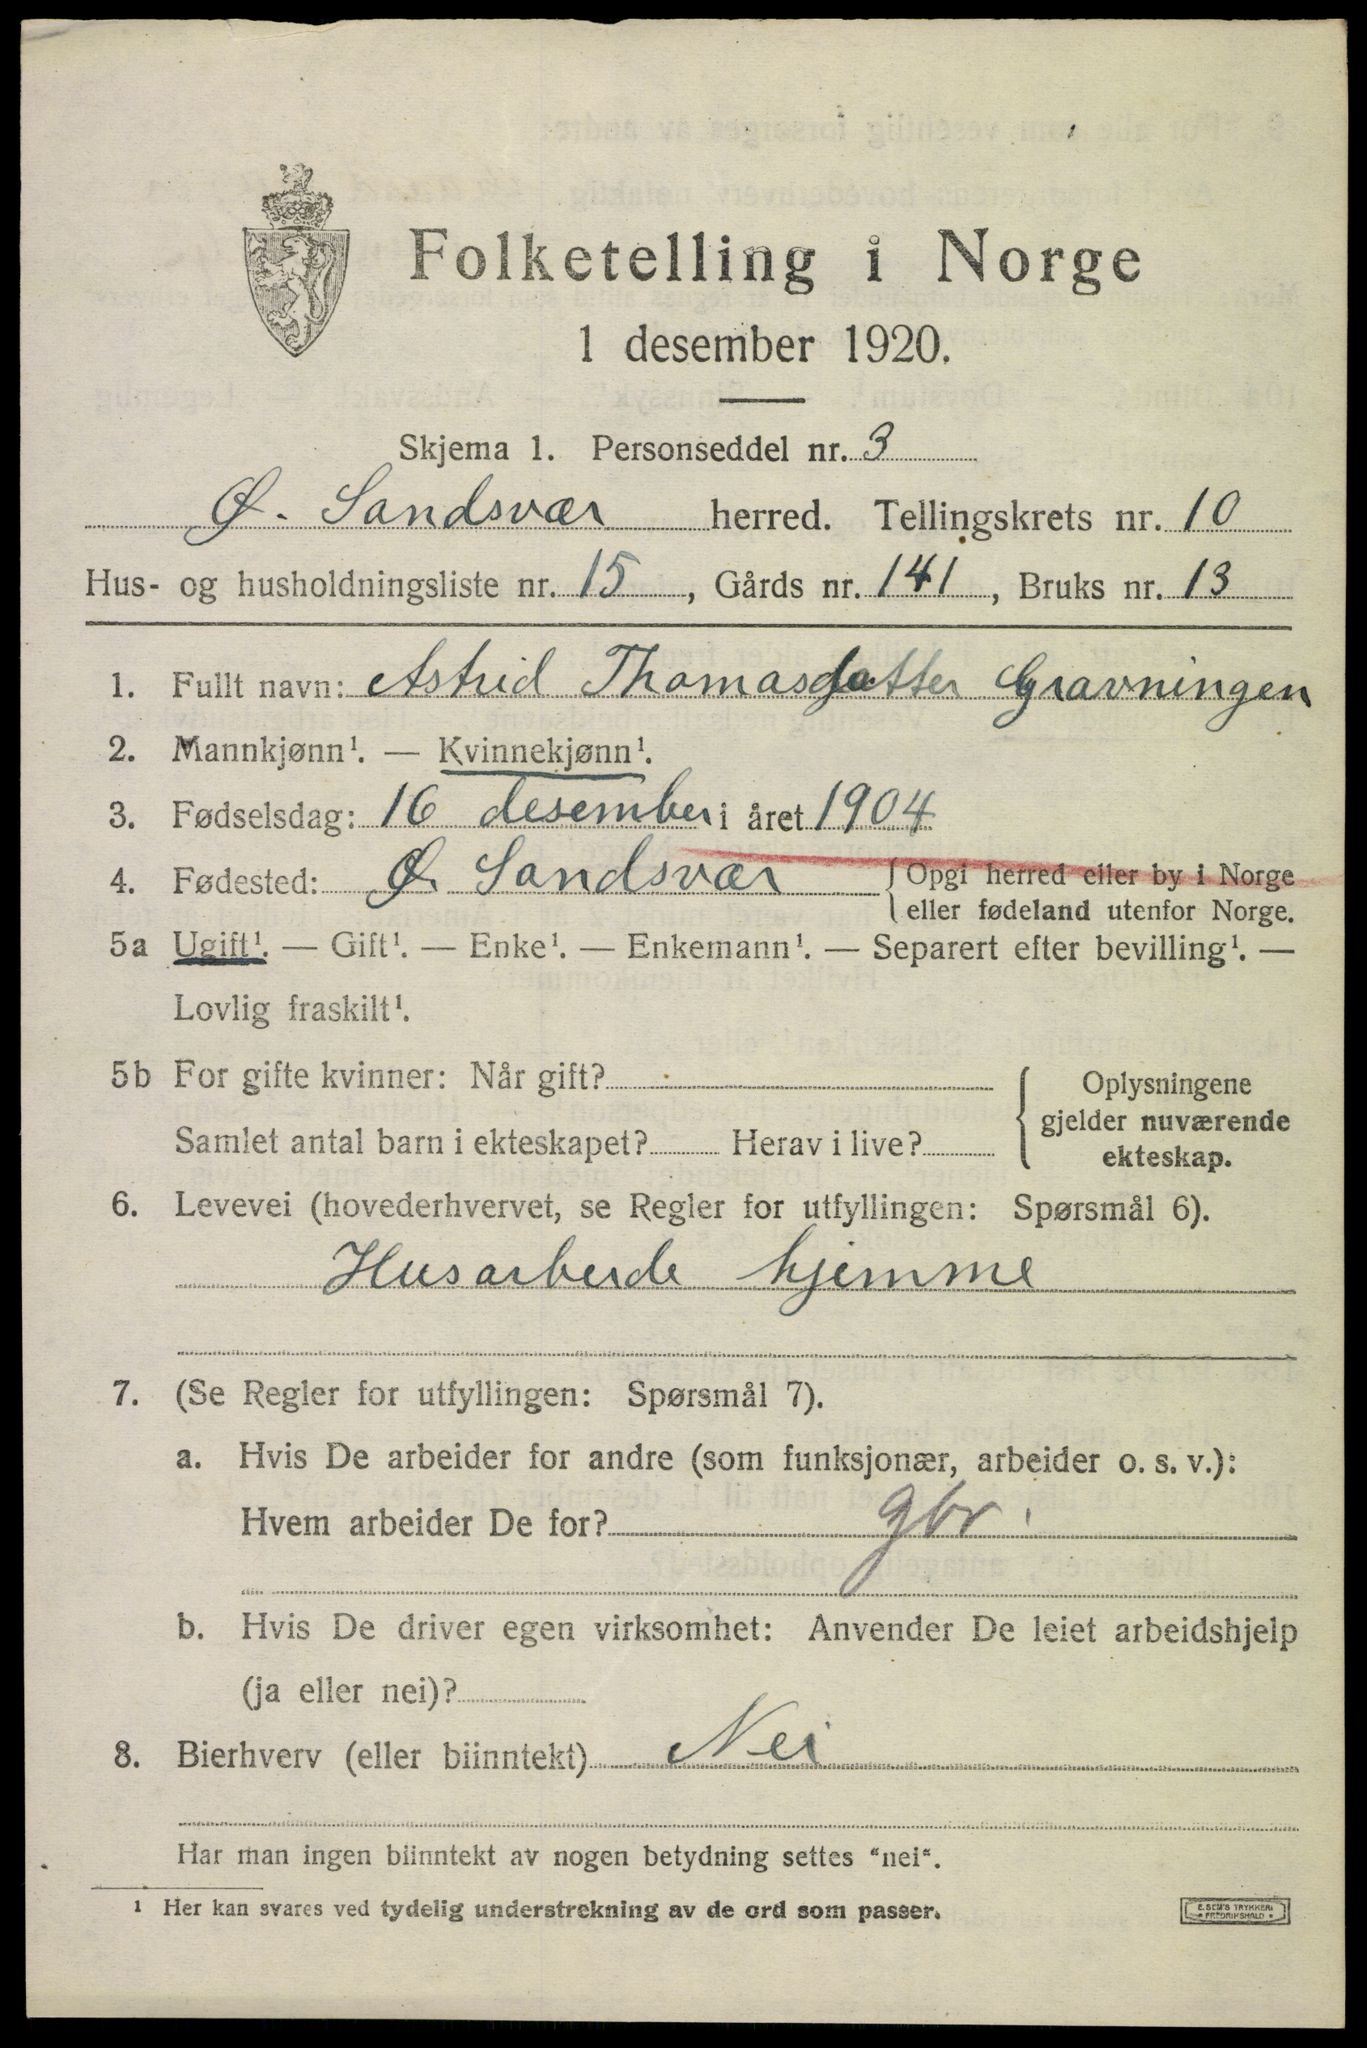 Folketelling i Norge
1 desember 1920.
Skjema 1. Personseddel nr. 3
Ø. Sandsvær herred. Tellingskrets nr. 10
Hus- og husholdningsliste nr. 15, Gårds nr. 141, Bruks nr. 13
1. Fullt navn: Astrid Thomasdatter Gravningen
2. Mannkjønn¹. — Kvinnekjønn¹.
3. Fødselsdag: 16 desember i året 1904
4. Fødested: Ø. Sandsvær { Opgi herred eller by i Norge
eller fødeland utenfor Norge.
5a Ugift¹. — Gift¹. — Enke¹. — Enkemann¹. — Separert efter bevilling¹. —
Lovlig fraskilt¹.
5b For gifte kvinner: Når gift?
Samlet antal barn i ekteskapet? Herav i live?
{ Oplysningene
gjelder nuværende
ekteskap.
6. Levevei (hovederhvervet, se Regler for utfyllingen: Spørsmål 6).
Husarbeide hjemme
7. (Se Regler for utfyllingen: Spørsmål 7).
a. Hvis De arbeider for andre (som funksjonær, arbeider o. s. v.):
Hvem arbeider De for? gbr.
b. Hvis De driver egen virksomhet: Anvender De leiet arbeidshjelp
(ja eller nei)?
8. Bierhverv (eller biinntekt) Nei
Har man ingen biinntekt av nogen betydning settes "nei".
¹ Her kan svares ved tydelig understrekning av de ord som passer.
E. SEM'S TRYKKERI
FREDRIKSHALD